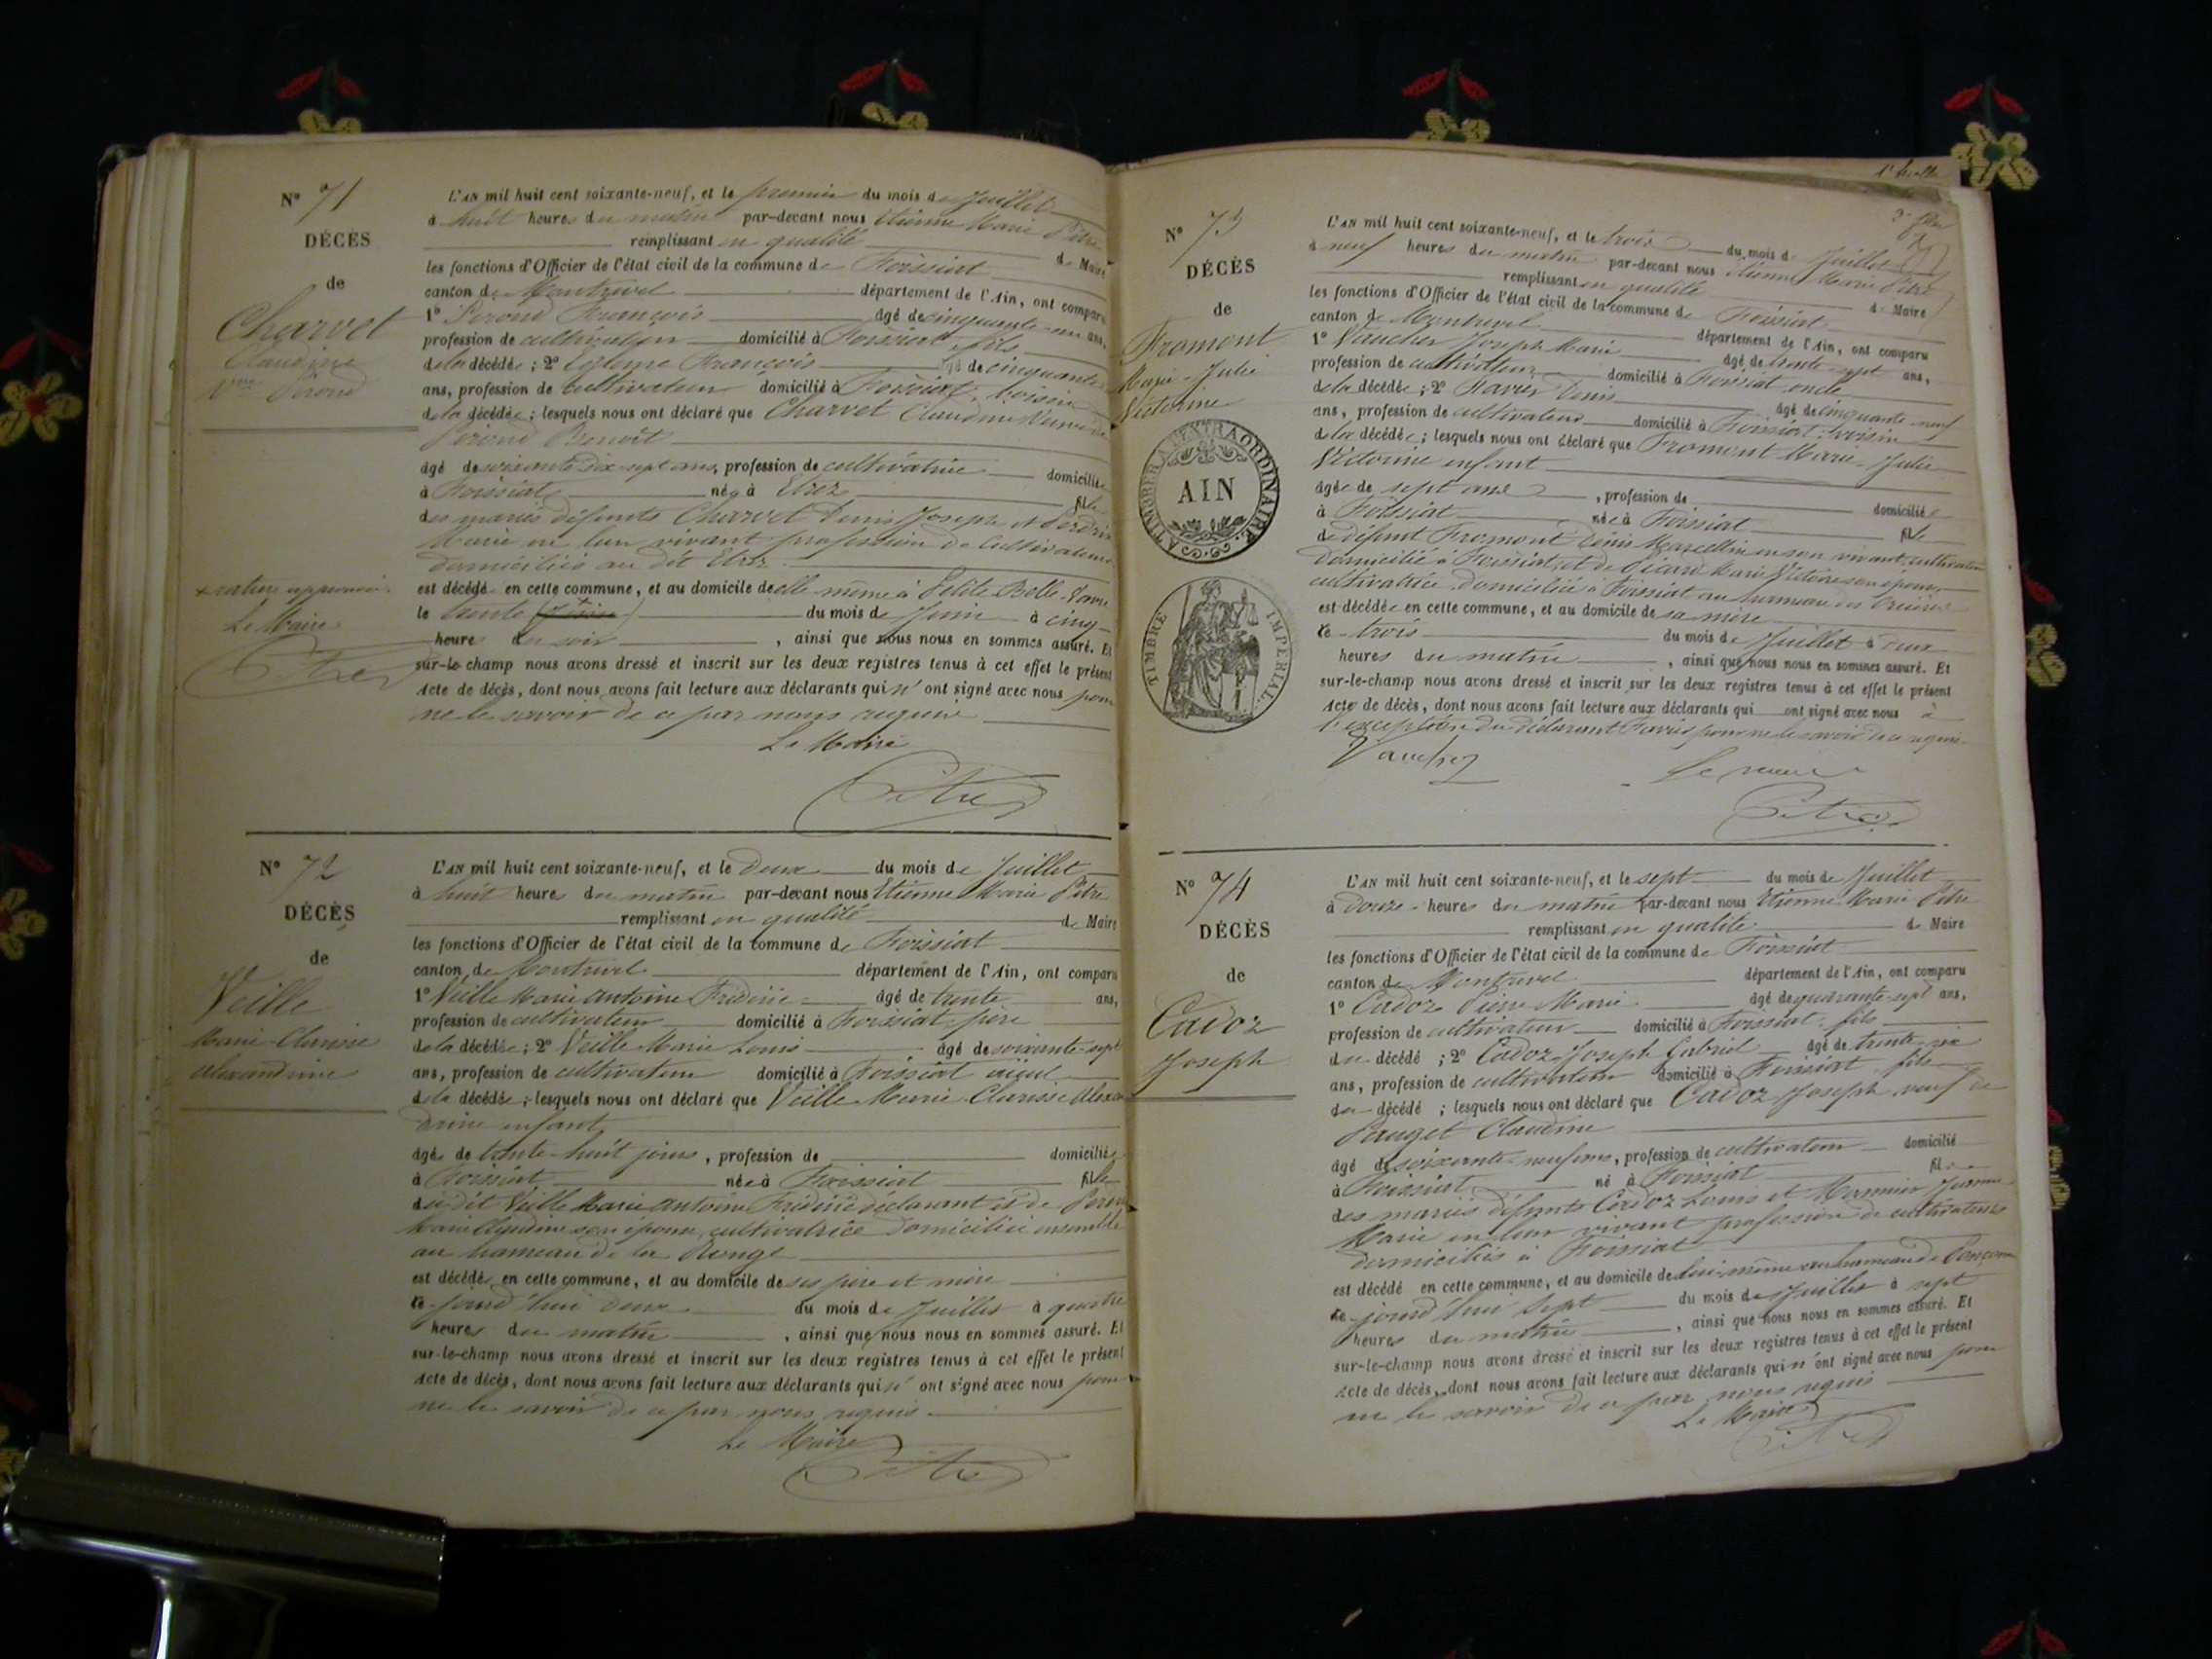 N° 71
DÉCÈS
de
Charvet
Claudine
Vve Perond
L'AN mil huit cent soixante-neuf, et le premier du mois de Juillet
à huit heures du matin par-devant nous Etienne Marie Pitre
remplissant en qualité de Maire
les fonctions d'Officier de l'état civil de la commune de Foissiat
canton de Montrevel département de l'Ain, ont comparu
1° Perond François âgé de cinquante-un ans,
profession de cultivateur domicilié à Foissiat, fils
de la décédée ; 2° François âgé de cinquante
ans, profession de cultivateur domicilié à Foissiat, voisin
de la décédée ; lesquels nous ont déclaré que Charvet Claudine Veuve de
Perond Benoît
âgé de soixante dix sept ans, profession de cultivatrice domiciliée
à Foissiat née à Etrez fille
des mariés défunts Charvet Denis Joseph et Perdrix
Marie en leur vivant profession de Cultivateurs
domiciliés au dit Etrez
est décédé en cette commune, et au domicile de elle même à Petite Belle
le trente du mois de Juin à cinq
heures du soir , ainsi que nous nous en sommes assuré. Et
sur-le-champ nous avons dressé et inscrit sur les deux registres tenus à cet effet le présent
Acte de décès, dont nous avons fait lecture aux déclarants qui n'ont signé avec nous pour
ne le savoir de ce par nous requis
Le Maire
Pitre
+ rature approuvée
Le Maire
Pitre
N° 72
DÉCÈS
de
Veille
Marie-Clarisse
alexandrine
L'AN mil huit cent soixante-neuf, et le Deux du mois de Juillet
à huit heures du matin par-devant nous Etienne Marie Pitre
remplissant en qualité de Maire
les fonctions d'Officier de l'état civil de la commune de Foissiat
canton de Montrevel département de l'Ain, ont comparu
1° Veille Marie Antoine Frédéric âgé de trente ans,
profession de cultivateur domicilié à Foissiat, père
de la décédée ; 2° Veille Marie Louis âgé de soixante-sept
ans, profession de cultivateur domicilié à Foissiat aïeul
de la décédée ; lesquels nous ont déclaré que Veille Marie Clarisse Alexan
drine enfant
âgée de trente-huit jours, profession de domiciliée
à Foissiat née à Foissiat fille
du dit Veille Marie Antoine Frédéric déclarant et de
Marie Claudine son épouse, cultivatrice domiciliée ensemble
au hameau de la Ronge
est décédée en cette commune, et au domicile de ses père et mère
ce jourd'hui deux du mois de Juillet à quatre
heures du matin , ainsi que nous nous en sommes assuré. Et
sur-le-champ nous avons dressé et inscrit sur les deux registres tenus à cet effet le présent
Acte de décès, dont nous avons fait lecture aux déclarants qui n'ont signé avec nous pour
ne le savoir de ce par nous requis
Le Maire
Pitre
N° 73
DÉCÈS
de
Fromont
Marie-Julie
Victorine
A TIMBRER A L'EXTRAORDINAIRE
AIN
TIMBRE IMPERIAL
L'AN mil huit cent soixante-neuf, et le trois du mois de Juillet
à neuf heures du matin par-devant nous Etienne Marie Pitre
remplissant en qualité de Maire
les fonctions d'Officier de l'état civil de la commune de Foissiat
canton de Montrevel département de l'Ain, ont comparu
1° Vaucher Joseph Marie âgé de trente-sept ans,
profession de cultivateur domicilié à Foissiat oncle
de la décédée ; 2° Favier Denis âgé de cinquante-neuf
ans, profession de cultivateur domicilié à Foissiat voisin
de la décédée ; lesquels nous ont déclaré que Fromont Marie-Julie
Victorine enfant
âgée de sept ans , profession de domiciliée
à Foissiat née à Foissiat fille
de défunt Fromont Denis Marcellin en son vivant cultivateur
domicilié à Foissiat, et de Picard Marie Victoire son épouse
cultivatrice domiciliée à Foissiat au hameau des
est décédée en cette commune, et au domicile de sa mère
le trois du mois de Juillet à deux
heures du matin , ainsi que nous nous en sommes assuré. Et
sur-le-champ nous avons dressé et inscrit sur les deux registres tenus à cet effet le présent
Acte de décès, dont nous avons fait lecture aux déclarants qui ont signé avec nous à
l'exception du déclarant Favier pour ne le savoir de ce requis
Vaucher
Le maire
Pitre
N° 74
DÉCÈS
de
Cadoz
Joseph
L'AN mil huit cent soixante-neuf, et le sept du mois de Juillet
à douze heures du matin par-devant nous Etienne Marie Pitre
remplissant en qualité de Maire
les fonctions d'Officier de l'état civil de la commune de Foissiat
canton de Montrevel département de l'Ain, ont comparu
1° Cadoz Pierre Marie âgé de quarante-sept ans,
profession de cultivateur domicilié à Foissiat, fils
du décédé ; 2° Cadoz Joseph Gabriel âgé de trente-six
ans, profession de cultivateur domicilié à Foissiat fils
du décédé ; lesquels nous ont déclaré que Cadoz Joseph veuf de
Pauget Claudine
âgé de soixante-neuf ans, profession de cultivateur domicilié
à Foissiat né à Foissiat fils
des mariés défunts Cadoz Louis et Monnier Jeanne
Marie en leur vivant profession de cultivateurs
domiciliés à Foissiat
est décédé en cette commune, et au domicile de lui-même au hameau de
ce jourd'hui sept du mois de Juillet à sept
heures du matin , ainsi que nous nous en sommes assuré. Et
sur-le-champ nous avons dressé et inscrit sur les deux registres tenus à cet effet le présent
Acte de décès, dont nous avons fait lecture aux déclarants qui n'ont signé avec nous pour
ne le savoir de ce par nous requis
Le Maire
Pitre